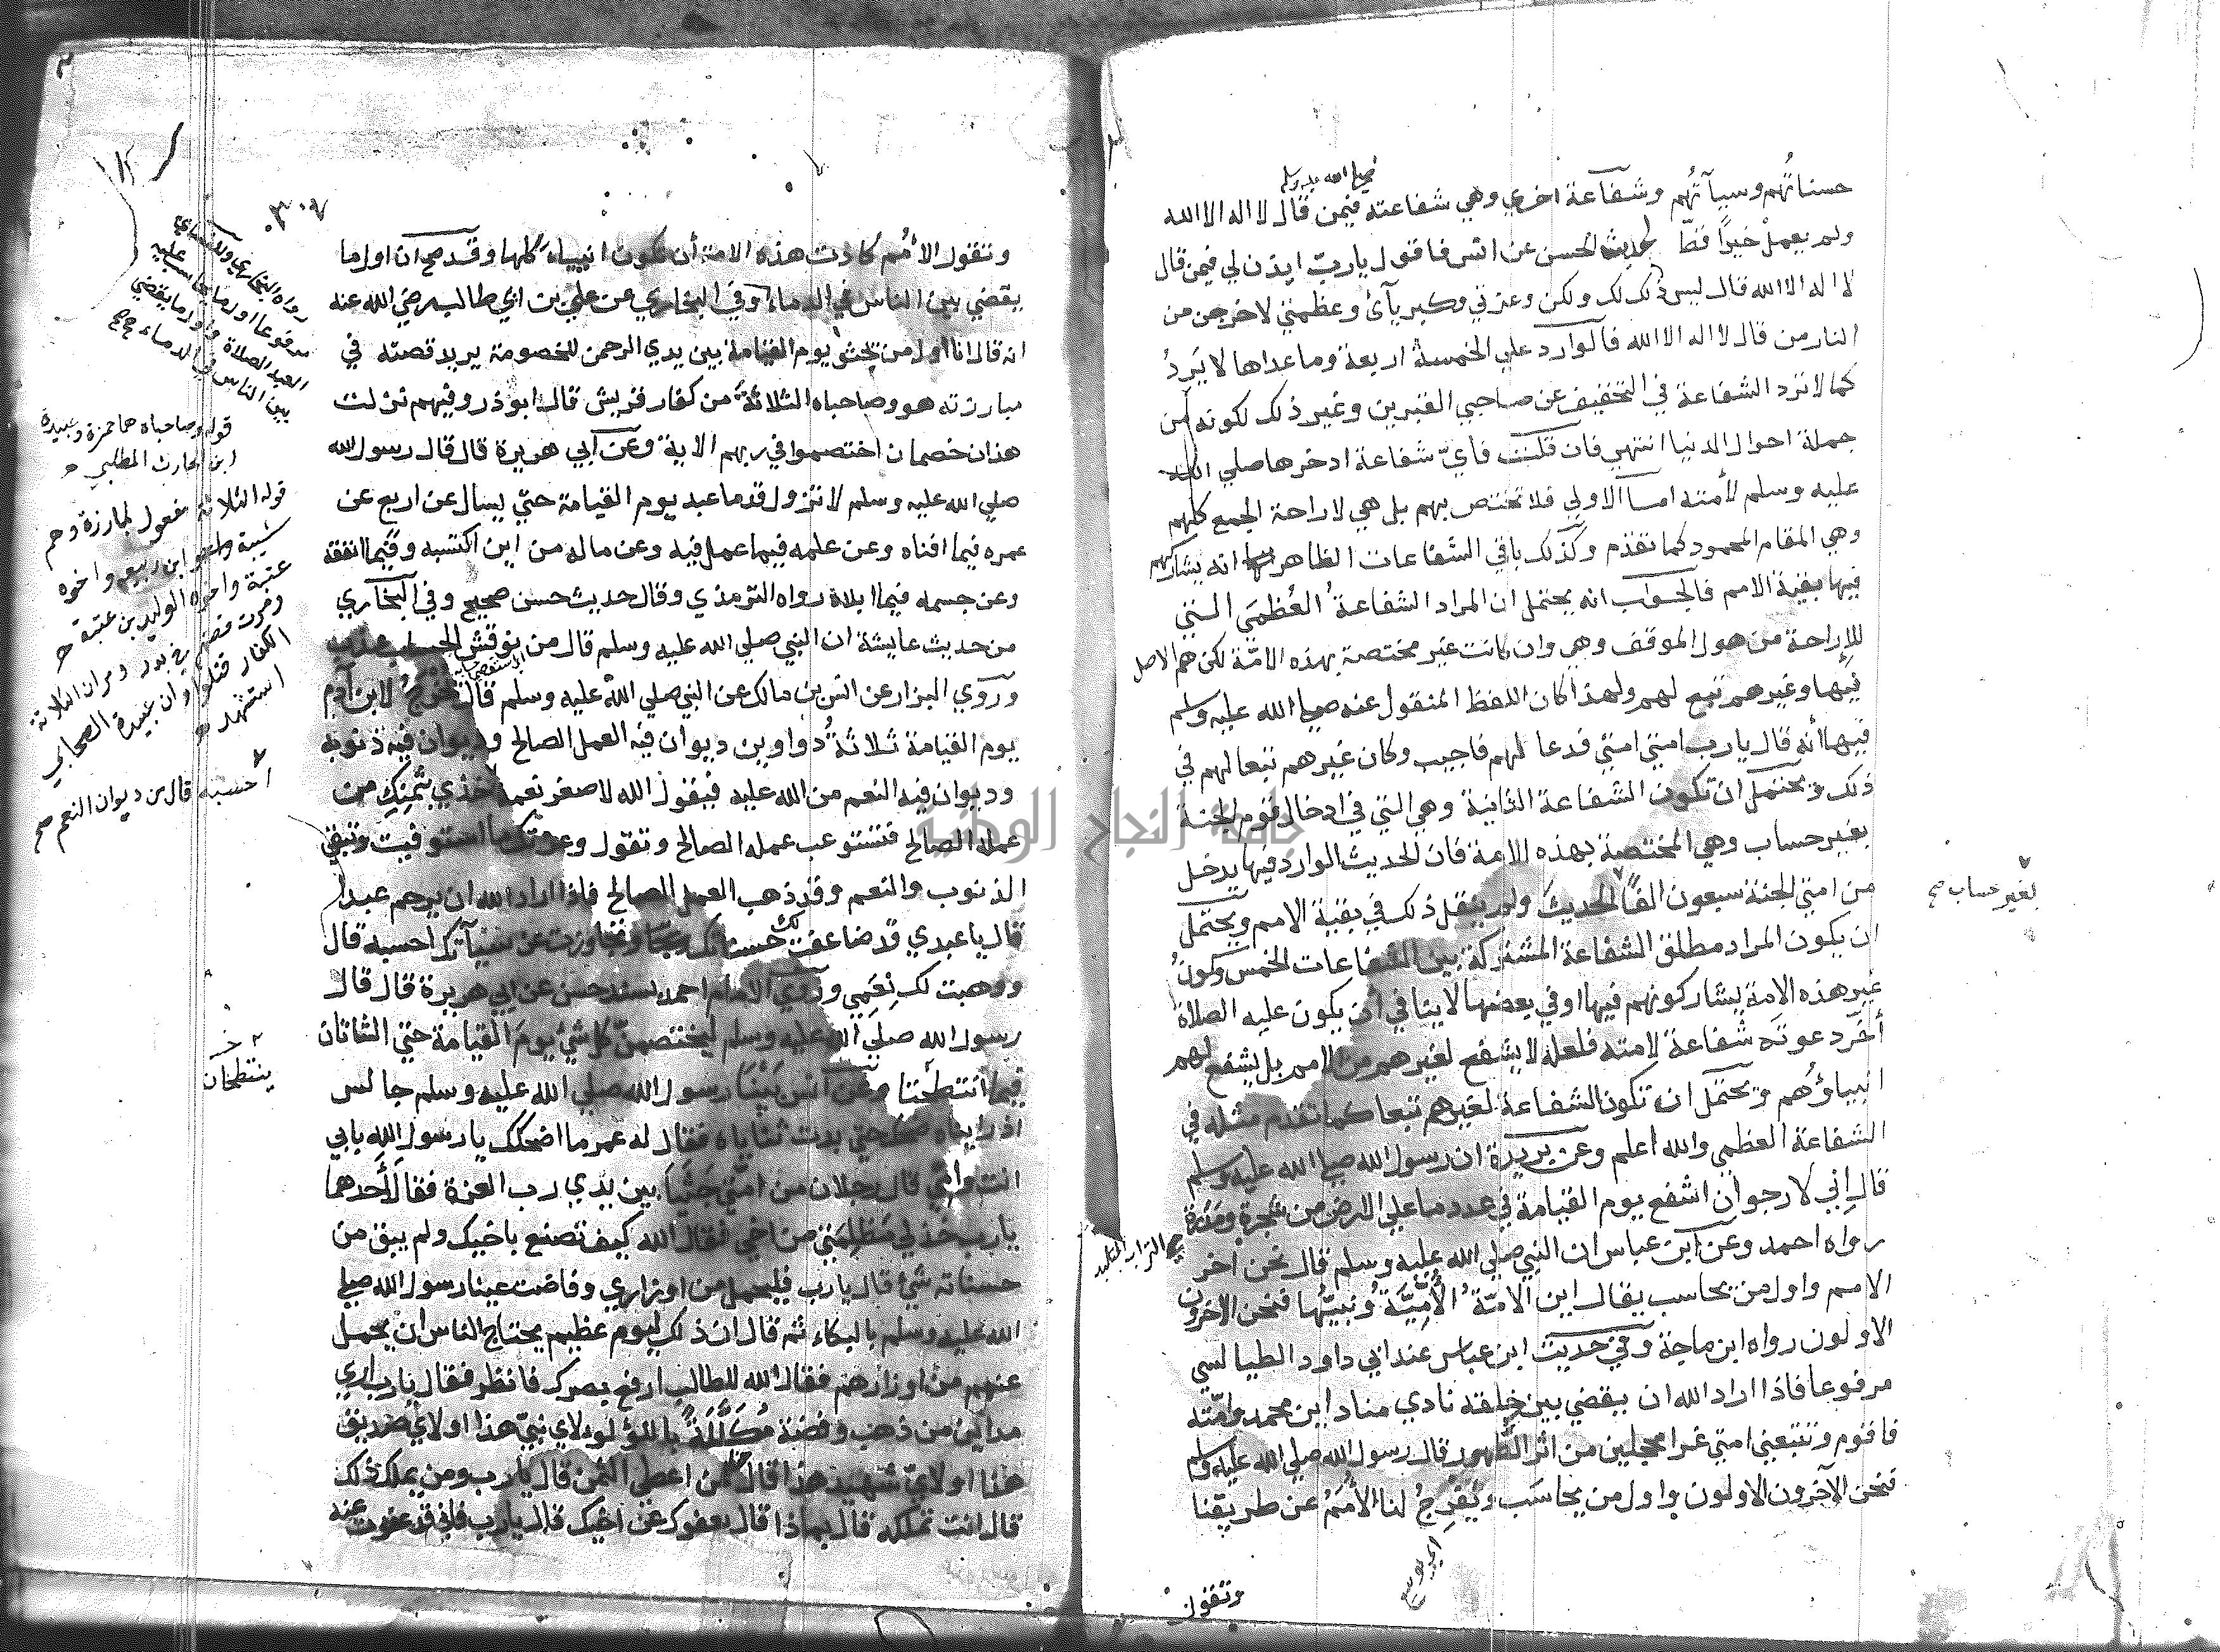 صلى الله عليه وسلم
حسناتُهم وسيآتُهم وشفاعة اخري وهي شفاعته فيمن قال لا اله الا الله
ولم يعمل خيرًا قطّ لحديث الحسن عن انس فاقول يا ربّ ايذن لي فيمن قال
لا اله الا الله قال ليس ذلك لك ولكن وعزتي وكبريآئ وعظمتي لاخرجن من
النار من قال لا اله الا الله فالوارد علي الخمسة اربعة وما عداها لا يَرِدُ
كما لا ترد الشفاعة في التخفيف عن صاحبي القبرين وغير ذلك لكونه من
جملة احوال الدنيا انتهي فان قلت فايّ شفاعة ادخرها صلي الله
عليه وسلم لأمته اما الاولي فلا تختص بهم بل هي لاراحة الجميع كلهم
وهي المقام المحمود كما تقدم وكذلك باقي الشفاعات الظاهر انه يشاركهم
فيها بقية الامم فالجواب انه يحتمل ان المراد الشفاعةُ العُظمَي التي
للإراحة من هول الموقف وهي وان كانت غير مختصة بهذه الامّة لكن هم الاصل
فيها وغيرهم تبع لهم ولهذا كان اللفظ المنقول عنه صلي الله عليه وسلم
فيها أنه قال يا رب امتي امتي فدعا لهم فاجيب وكان غيرهم تبعا لهم في
ذلك ويحتمل ان تكون الشفاعة الثانية وهي التي في ادخال قوم الجنة
بغير حساب وهي المختصة بهذه الامة فان الحديث الوارد فيها يدخل
من امتي الجنة سبعون الفًا الحديثَ ولم ينقل ذلك في بقية الامم ويحتمل
بغير حساب صح
ان يكون المراد مطلق الشفاعة المشتركة بين الشفاعات الخمس وكونُ
غير هذه الامة يشاركونهم فيها او في بعضها لا ينافي أن يكون عليه الصلاة
أخّر دعوته شفاعة لامته فلعله لا يشفع لغيرهم من الامم بل يشفع لهم
انبياؤُهم ويحتمل ان تكون الشفاعة لغيرهم تبعا كما تقدم مثله في
الشفاعة العظمي والله اعلم وعن بريدة ان رسول الله صلي الله عليه وسلم
قال إني لارجو أن اشفع يوم القيامة في عدد ما علي الارض من شجرة ومَدَرَة
رواه احمد وعن ابن عباس ان النبي صلي الله عليه وسلم قال نحن اخر
الامم واول من يحاسب يقال اين الامّةُ الأُمّيَّةُ ونبيُّها فنحن الاخرون
الاولون رواه ابن ماجة وفي حديث ابن عباس عند ابي داود الطيالسي
مرفوعا فاذا اراد الله ان يقضي بين خلقه نادي مناد اين محمد وامّته
فاقوم وتتبعني امتي غرا محجلين من اثر الطُّهور قال رسول الله صلي الله عليه وسلم
فنحن الآخرون الاولون واول من يحاسَب وتُفْرِجُ لنا الأُمَمُ عن طريقنا
وتقول
وتقول الأمُم كادت هذه الامة أن تكون انبياءَ كلها وقد صح ان اول ما
يقضي بين الناس في الدماء وفي البخاري عن علي بن ابي طالب رضي الله عنه
انه قال انا اول من يجثو يوم القيامة بين يدي الرحمن للخصومة يريد قصته في
مبارزته هو وصاحباه الثلاثةَ من كفار قريش قال ابو ذر وفيهم نزلت
هذان خصمان اختصموا في ربهم الاية وعن أبي هريرة قال قال رسول الله
صلي الله عليه وسلم لا تزول قدما عبد يوم القيامة حتي يسال عن اربع عن
عمره فيما افناه وعن علمه فيما عمل فيه وعن ماله من اين اكتسبه وفيما انفقه
وعن جسمه فيما ابلاه رواه الترمذي وقال حديث حسن صحيح وفي البخاري
من حديث عايشة ان النبي صلي الله عليه وسلم قال من نوقش الحساب عذب
وروي البزار عن انس بن مالك عن النبي صلي الله عليه وسلم قال يُخْرَجُ لابن آدم
يوم القيامة ثلاثةُ دواوين ديوان فيه العمل الصالح وديوان فيه ذنوبه
وديوان فيه النعم من الله عليه فيقول الله لاصغر نعمة خذي ثمنكِ من
عمله الصالح فتستوعب عمله الصالح وتقول وعزتك ما استوفيت وتبقي
الذنوب والنعم وقد ذهب العمل الصالح فاذا اراد الله ان يرحم عبدا
قال يا عبدي قد ضاعفت لك حسناتك وتجاوزت عن سيآتك احسبه قال
ووهبت لك نِعَمِي وروي الامام احمد بسند حسن عن ابي هريرة قال قال
رسول الله صلي الله عليه وسلم ليختصمنّ كل شئ يومَ القيامة حتي الشاتان
فيما انتطحتا وعن انس بَيْنَا رسول الله صلي الله عليه وسلم جالس
اذ رايناه ضحك حتي بدت ثناياه فقال له عمر ما اضحكك يا رسول الله بابي
انت وامّي قال رجلان من امتي جَثَيَا بين يدي رب العزة فقال أحدهما
يا رب خذ لي مَظْلِمَتي من اخي فقال الله كيف تصنع باخيك ولم يبق من
حسناته شئ قال يا رب فليحمل من اوزاري وفاضت عينا رسول الله صلي
الله عليه وسلم بالبكاء ثم قال ان ذلك ليوم عظيم يحتاج الناس ان يحمل
عنهم من اوزارهم فقال الله للطالب ارفع بصرك فانظر فقال يا رب اري
مداين من ذهب وفضة مُكَلَّلَةً باللؤلؤ لاي نبيّ هذا او لايّ صديق
هذا او لايّ شهيد هذا قال لمن اعطي الثمن قال يا رب ومن يملك ذلك
قال انت تملكه قال بماذا قال بعفوك عن اخيك قال يا رب فاني قد عفوت عنه
رواه البخاري وللنسائي
مرفوعا اول ما يحاسب عليه
العبد الصلاة واول ما يقضي
بين الناس في الدماء صح
قوله وصاحباه هما حمزة وعبيدة
ابن الحارث المطلبي
قوله الثلاثة مفعول لمبارزة وهم
شيبة ابن ربيعة واخوه
عتبة والوليد بن عتبة
الكفار قتلوا وان عبيدة الصحابي
استشهد
أحسبه قال من ديوان النعم صح
ينتطحان